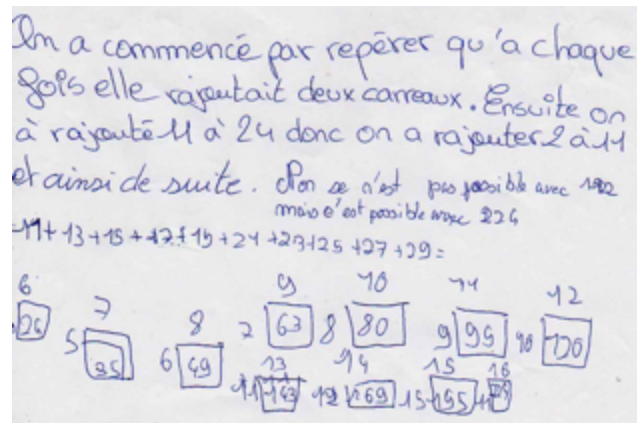 On a commencé par repérer qu'a chaque
fois elle rajoutait deux carreaux. Ensuite on
à rajouté 11 à 24 donc on a rajouter 2 à 11
et ainsi de suite. Non se n'est pas possible avec 192
mais c'est possible avec 224
11+13+15+17+19+21+23+25+27+29=
6 7 8 9 10 11 12
5 35 6 49 7 63 8 80 9 99 10 120
13 14 15 16
11 143 12 169 13 195